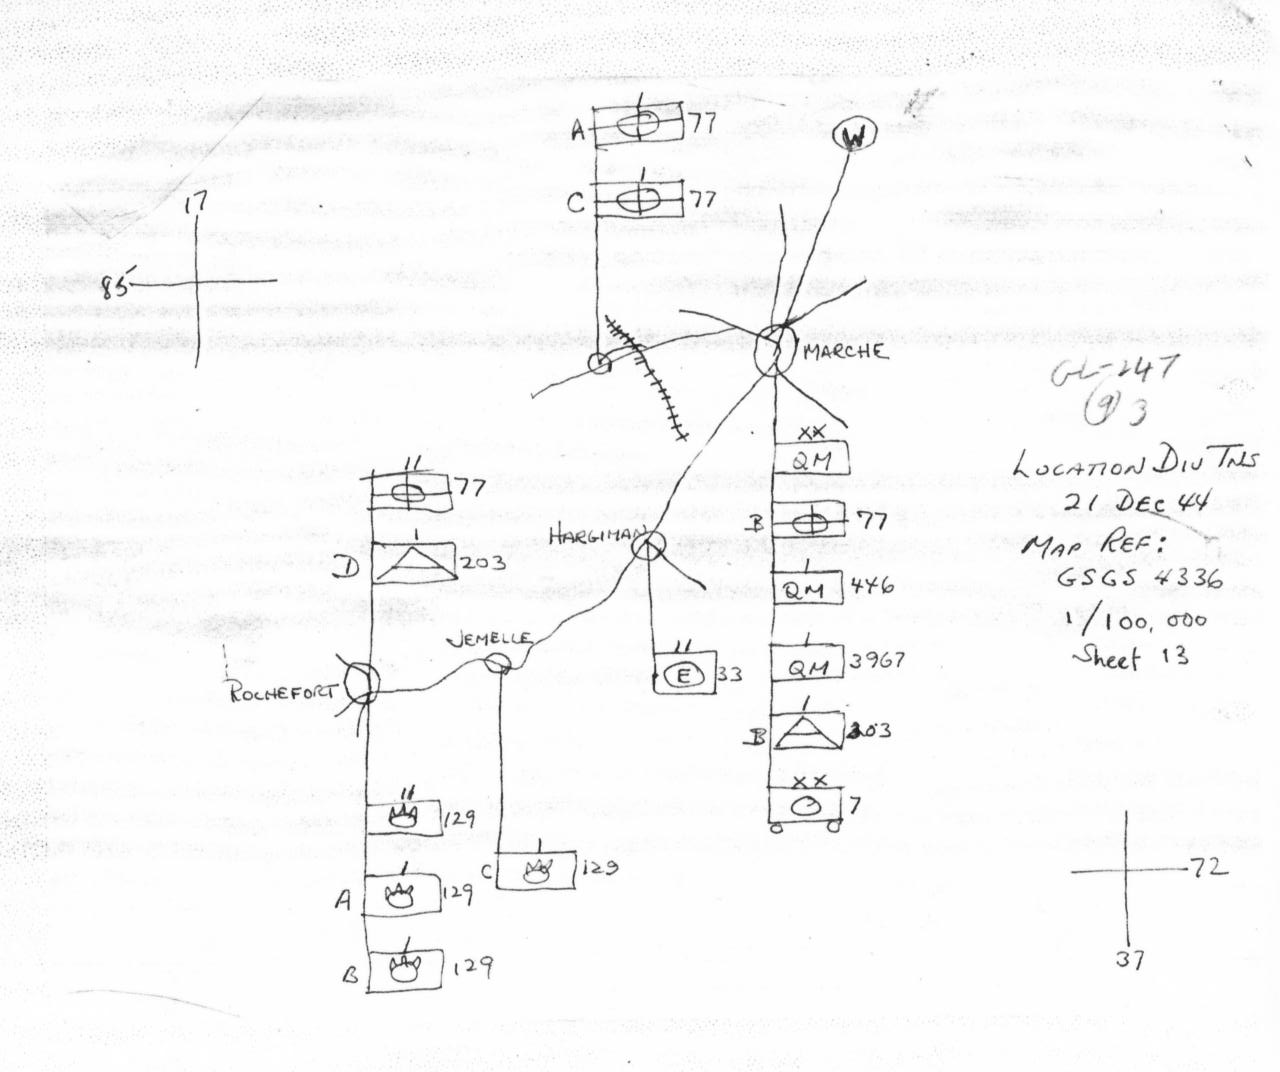 A 77
W
C 77
17
85
MARCHE
GL-247
(9) 3
XX
QM
LOCATION DIV TNS
21 DEC 44
MAP REF:
GSGS 4336
1/100,000
Sheet 13
11
77
B 77
HARGIMAN
D 203
QM 446
JEMELLE
11
E 33
QM 3967
ROCHEFORT
B 203
XX
7
11
129
C 129
A 129
B 129
72
37